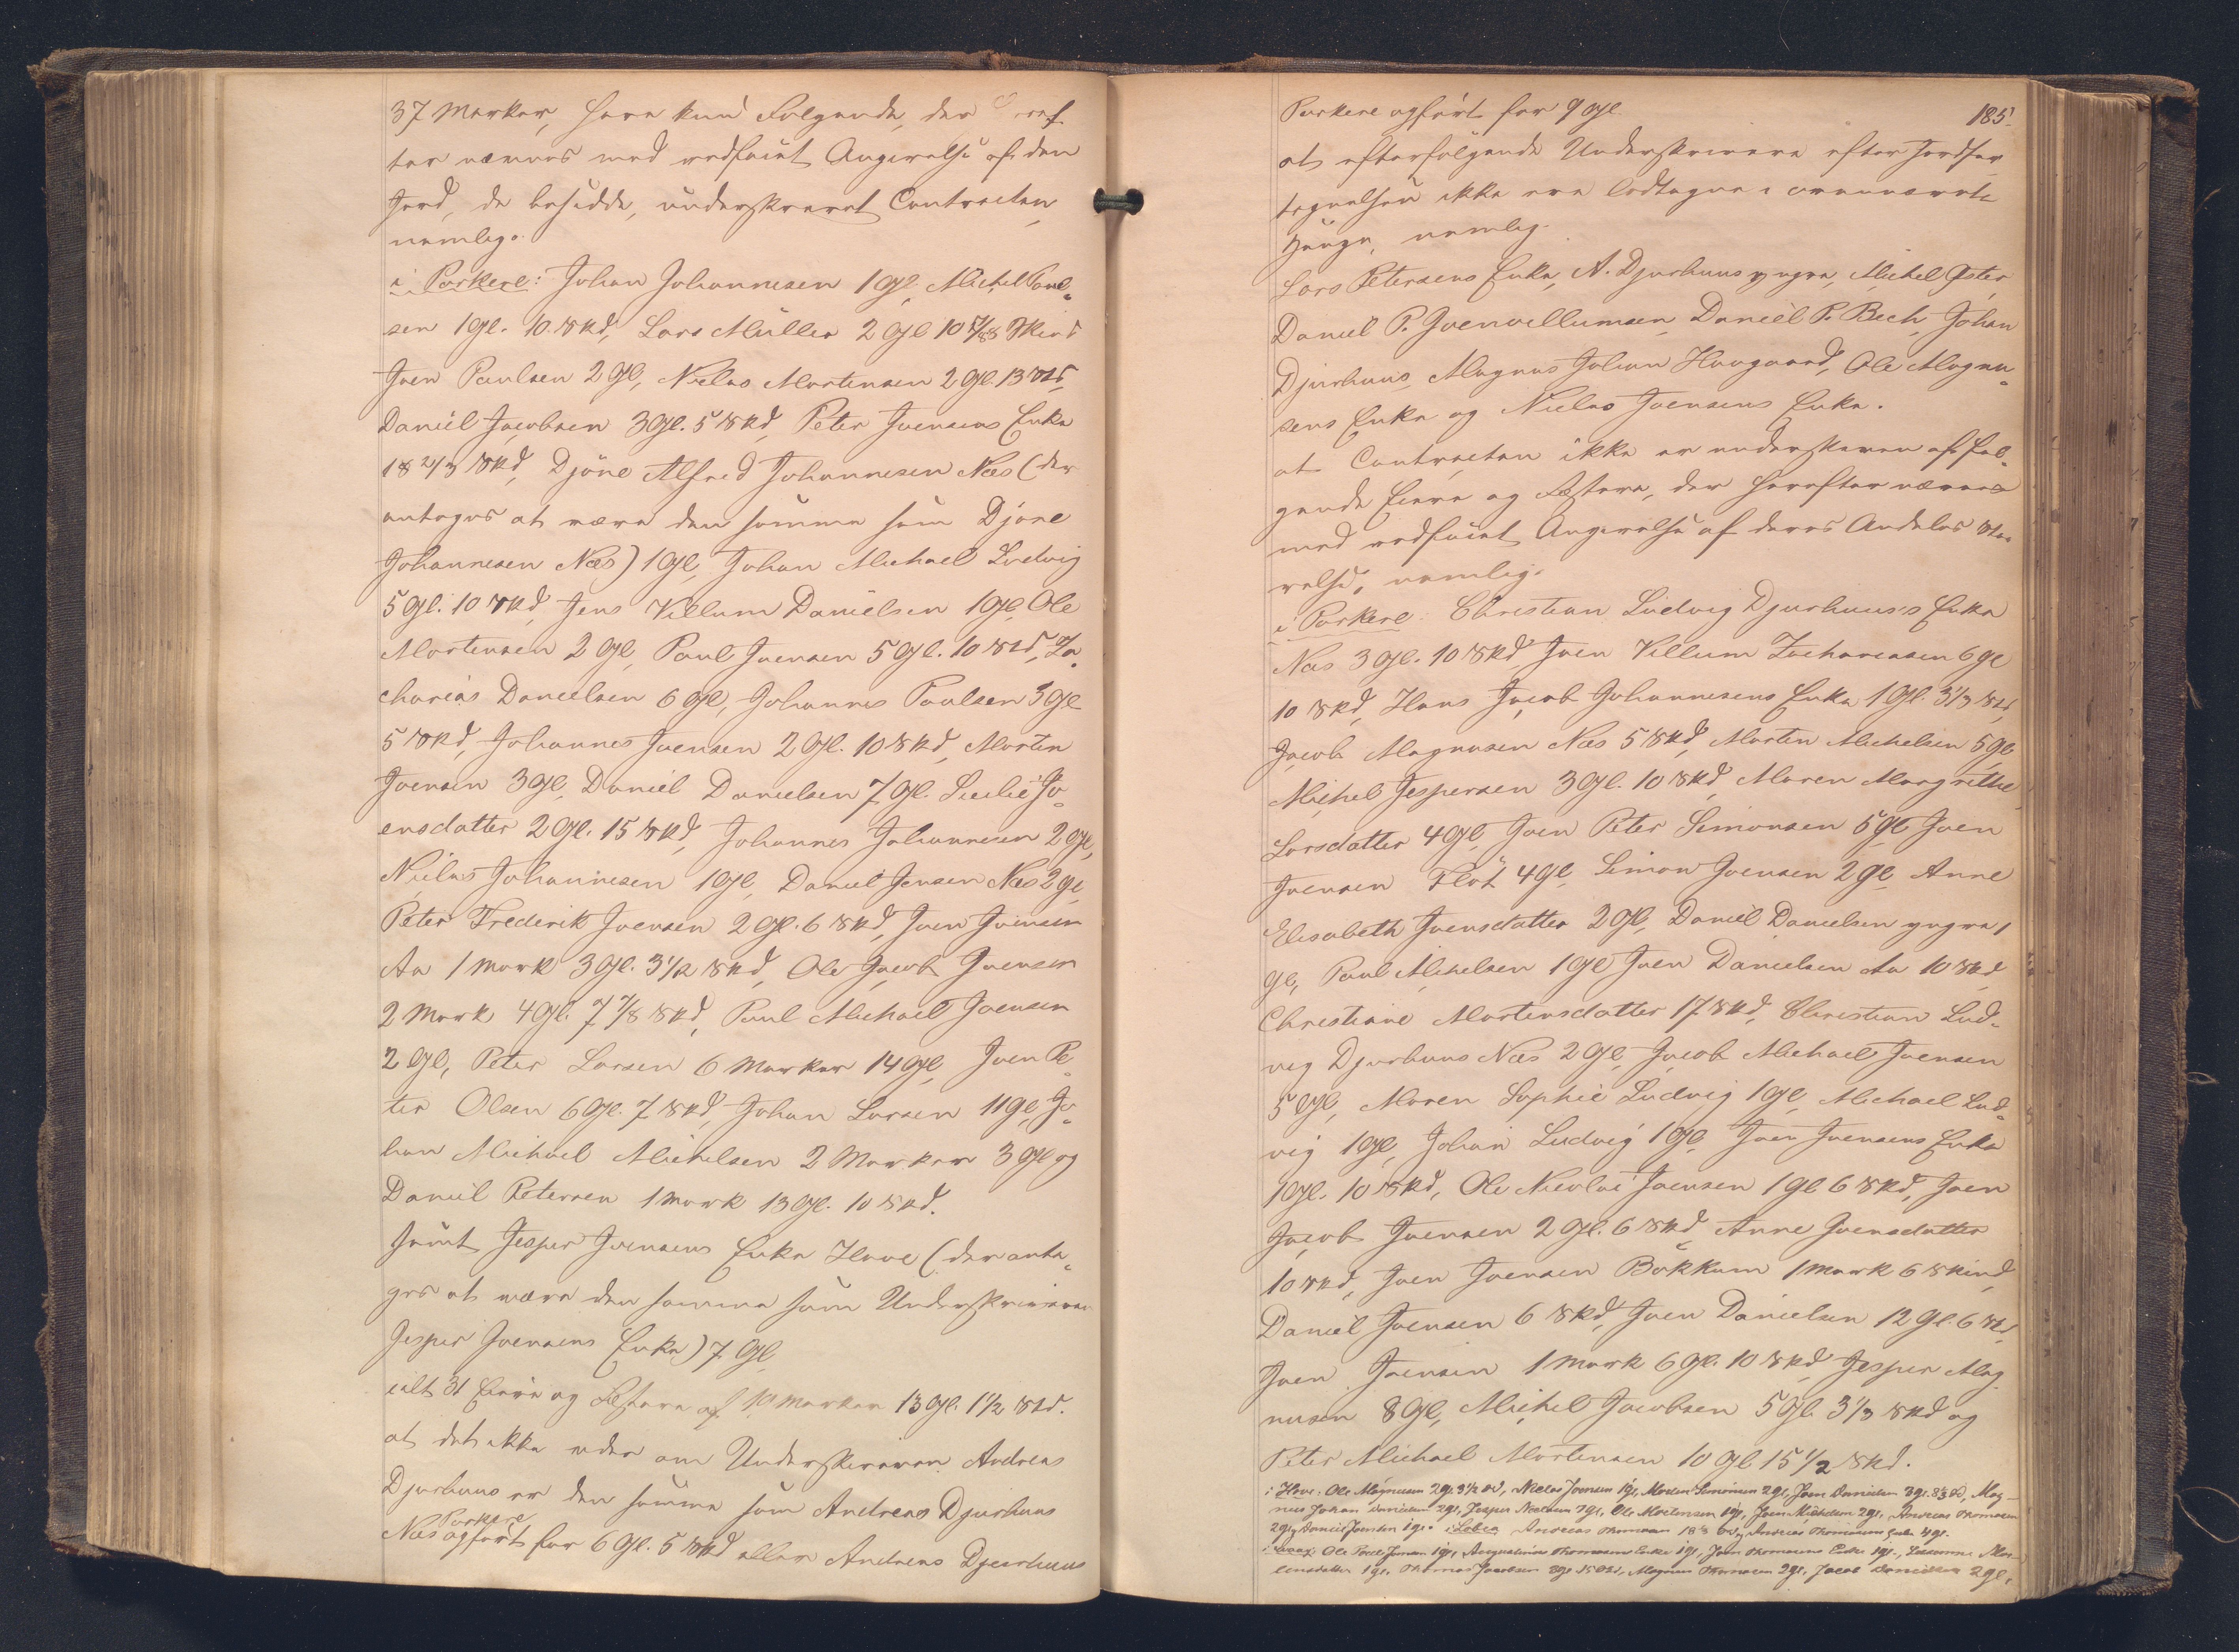 37 Marker, have kun Følgende, der heref
ter nævnes med vedføiet Angivelse af den
Jord, de besidde, underskrevet Contracten,
nemlig:
i Porkere: Johan Johannesen 1 Gl, Michel Poul=
sen 1 Gl. 10 Skd, Lars Müller 2 Gl 10 Skind
Joen Poulsen 2 Gl, Niclas Mortensen 2 Gl. 13 Skd,
Daniel Jacobsen 3 Gl. 5 Skd, Peter Joensens Enke
18 2/3 Skd, Djóne Alfred Johannesen Næs (der
antages at være den samme som Djone
Johannesen Næs) 1 Gl, Johan Michael Ludvig
5 Gl. 10 Skd, Jens Villum Danielsen 1 Gl, Ole
Mortensen 2 Gl, Poul Joensen 5 Gl. 10 Skd, Za=
charias Danielsen 6 Gl, Johannes Poulsen 3 Gl
5 Skd, Johannes Joensen 2 Gl. 10 Skd, Morten
Joensen 3 Gl, Daniel Danielsen 7 Gl. Jo=
ensdatter 2 Gl. 15 Skd, Johannes Johannesen 2 Gl,
Niclas Johannesen 1 Gl, Daniel Jensen Næs 2 Gl,
Peter Frederik Joensen 2 Gl. 6 Skd, Joen Joensen
Aa 1 Mark 3 Gl. 3 1/2 Skd, Ole Jacob Joensen
2 Mark 4 Gl. 7 7/8 Skd, Poul Michael Joensen
2 Gl, Peter Larsen 6 Marker 14 Gl, Joen Pe=
ter Olsen 6 Gl. 7 Skd, Johan Larsen 11 Gl, Jo=
han Michael Michelsen 2 Marker 3 Gl og
Daniel Petersen 1 Mark 13 Gl. 10 Skd.
samt Jesper Joensens Enke Hove (der anta=
ges at være den samme som Underskriveren
Jesper Joensens Enke) 7 Gl,
ialt 31 Eiere og Fæstere af Marker 13 Gl. 1 1/2 Skd.
at det ikke vides om Underskriveren Andreas
Djurhuus er den samme som Andreas Djurhuus
Porkere
Næs opført for 6 Gl. 5 Skd eller Andreas Djurhuus
Porkere opført for 9 Gl. 185.
at efterfølgende Underskrivere efter Jordfor
tegnelsen ikke ere lodtagne i omhandlede
Hauge, nemlig:
Lars Petersens Enke, A. Djurhuus yngre, Michel Øster,
Daniel P. Joenvillumsen, Daniel P. Bech, Johan
Djurhuus, Magnus Johan Haugaard, Ole Magnu=
sens Enke og Niclas Joensens Enke.
at Contracten ikke er underskreven af føl=
gende Eiere og Fæstere, der herefter nævnes
med vedføiet Angivelse af deres Andeles Stør
relse, nemlig:
i Porkere: Christian Ludvig Djurhuus's Enke
Næs 3 Gl. 10 Skd, Joen Villum Zachariasen 6 Gl
10 Skd, Hans Jacob Johannesens Enke 1 Gl. 3 1/3 Skd,
Jacob Magnusen Næs 5 Skd, Morten Michelsen 5 Gl,
Michel Jespersen 3 Gl. 10 Skd, Maren Margrethe
Larsdatter 4 Gl, Joen Peter Simonsen 5 Gl, Joen
Joensen Fløt 4 Gl, Simon Joensen 2 Gl, Anne
Elisabeth Joensdatter 2 Gl, Daniel Danielsen yngre 1
Gl, Poul Michelsen 1 Gl, Joen Danielsen Aa 10 Skd
Christiane Mortensdatter 17 Skd, Christian Lud=
vig Djurhuus Næs 2 Gl, Jacob Michael Joensen
5 Gl, Maren Sophie Ludvig 1 Gl, Michael Lud=
vig 1 Gl, Johan Ludvig 1 Gl, Joen Joensens Enke
1 Gl. 10 Skd, Ole Nicolai Joensen 1 Gl 6 Skd, Joen
Jacob Joensen 2 Gl. 6 Skd, Anne Joensdatter
10 Skd, Joen Joensen Bökkum 1 Mark 6 Skind,
Daniel Joensen 6 Skd, Joen Danielsen 12 Gl. 6 Skd
Joen Joensen 1 Mark 6 Gl. 10 Skd, Jesper Mag
nusen 8 Gl, Michel Jacobsen 5 Gl. 3 1/3 Skd og
Peter Michael Mortensen 10 Gl 15 1/2 Skd.
i Hove: Ole Magnusen 2 gl. 3 1/2 Skd, Niclas Joensen 1 gl, Morten Simonsen 2 gl, Joen Danielsen 3 gl. 8 1/3 Skd, Mag=
nus Johan Danielsen 2 gl, Jesper Nielsen 7 gl, Ole Mortensen 1 gl, Joen Michelsen 2 gl, Andreas Thomasen
2 gl, Daniel Joensen 1 gl. i Lobra Andreas Thomasen og Andreas Thomasens Enke 4 gl.
i Vaag: Ole Poul Jensen 1 gl, Augustinus Thomasens Enke 1 gl, Joen Thomasens Enke 1 gl, Susanne Mor=
tensdatter 1 gl, Thomas Jacobsen 3 gl 15 Skd, Magnus Thomasen 2 gl, Jacob Danielsen 2 gl,